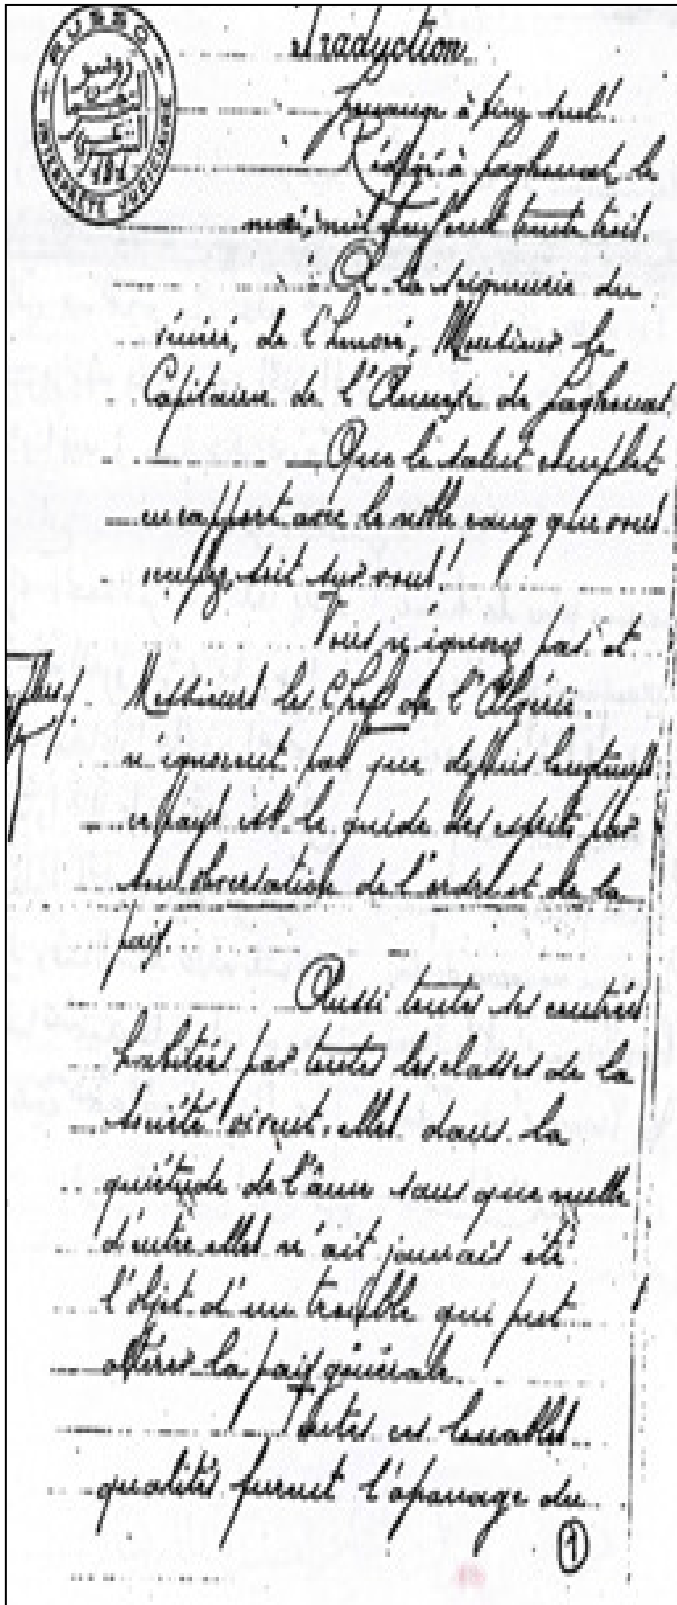 RUSSO
INTERPRÈTE JUDICIAIRE
Traduction
Louange à Dieu seul!
Rédigé à Laghouat, le
mai, mil neuf cent trente trois.
A la seigneurie du
vénéré, de l'honoré, Monsieur le
Capitaine de l'Annexe de Laghouat.
Que le salut complet
en rapport avec le noble rang que vous
occupez, soit sur vous!
Vous n'ignorez pas et
Messieurs les Chefs de l'Algérie
n'ignorent pas que depuis longtemps
ce pays est le guide des esprits par
son observation de l'ordre et de la
paix.
Aussi toutes ses contrées
habitées par toutes les classes de la
société vivent-elles dans la
quiétude de l'âme sans que nulle
d'entre elles n'ait jamais été
l'objet d'un trouble qui put
altérer la paix générale.
Toutes ces louables
qualités furent l'apanage du
1